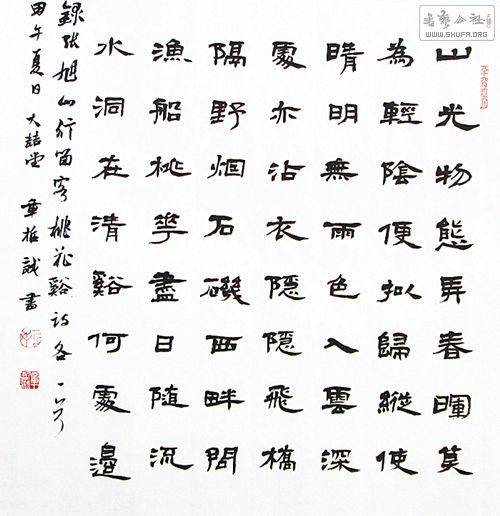 山光物態弄春暉莫
為輕陰便拟歸縱使
晴明無雨色入雲深
處亦沾衣隱隱飛橋
隔野烟石磯西畔問
漁船桃華盡日随流
水洞在清谿何處邊
錄張旭山行留客桃花谿詩各一首
甲午夏日大喆堂 章哲誠書
WWW.SHUFA.ORG